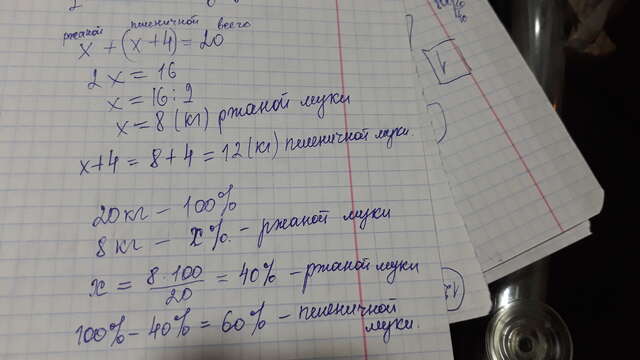 x + (x + 4) = 20
ржаной пшеничной всего
2x = 16
x = 16 : 2
x = 8 (кг) ржаной муки
x + 4 = 8 + 4 = 12 (кг) пшеничной муки
20 кг — 100%
8 кг — x% - ржаной муки
x = 8·100/20 = 40% - ржаной муки
100% - 40% = 60% - пшеничной
муки.